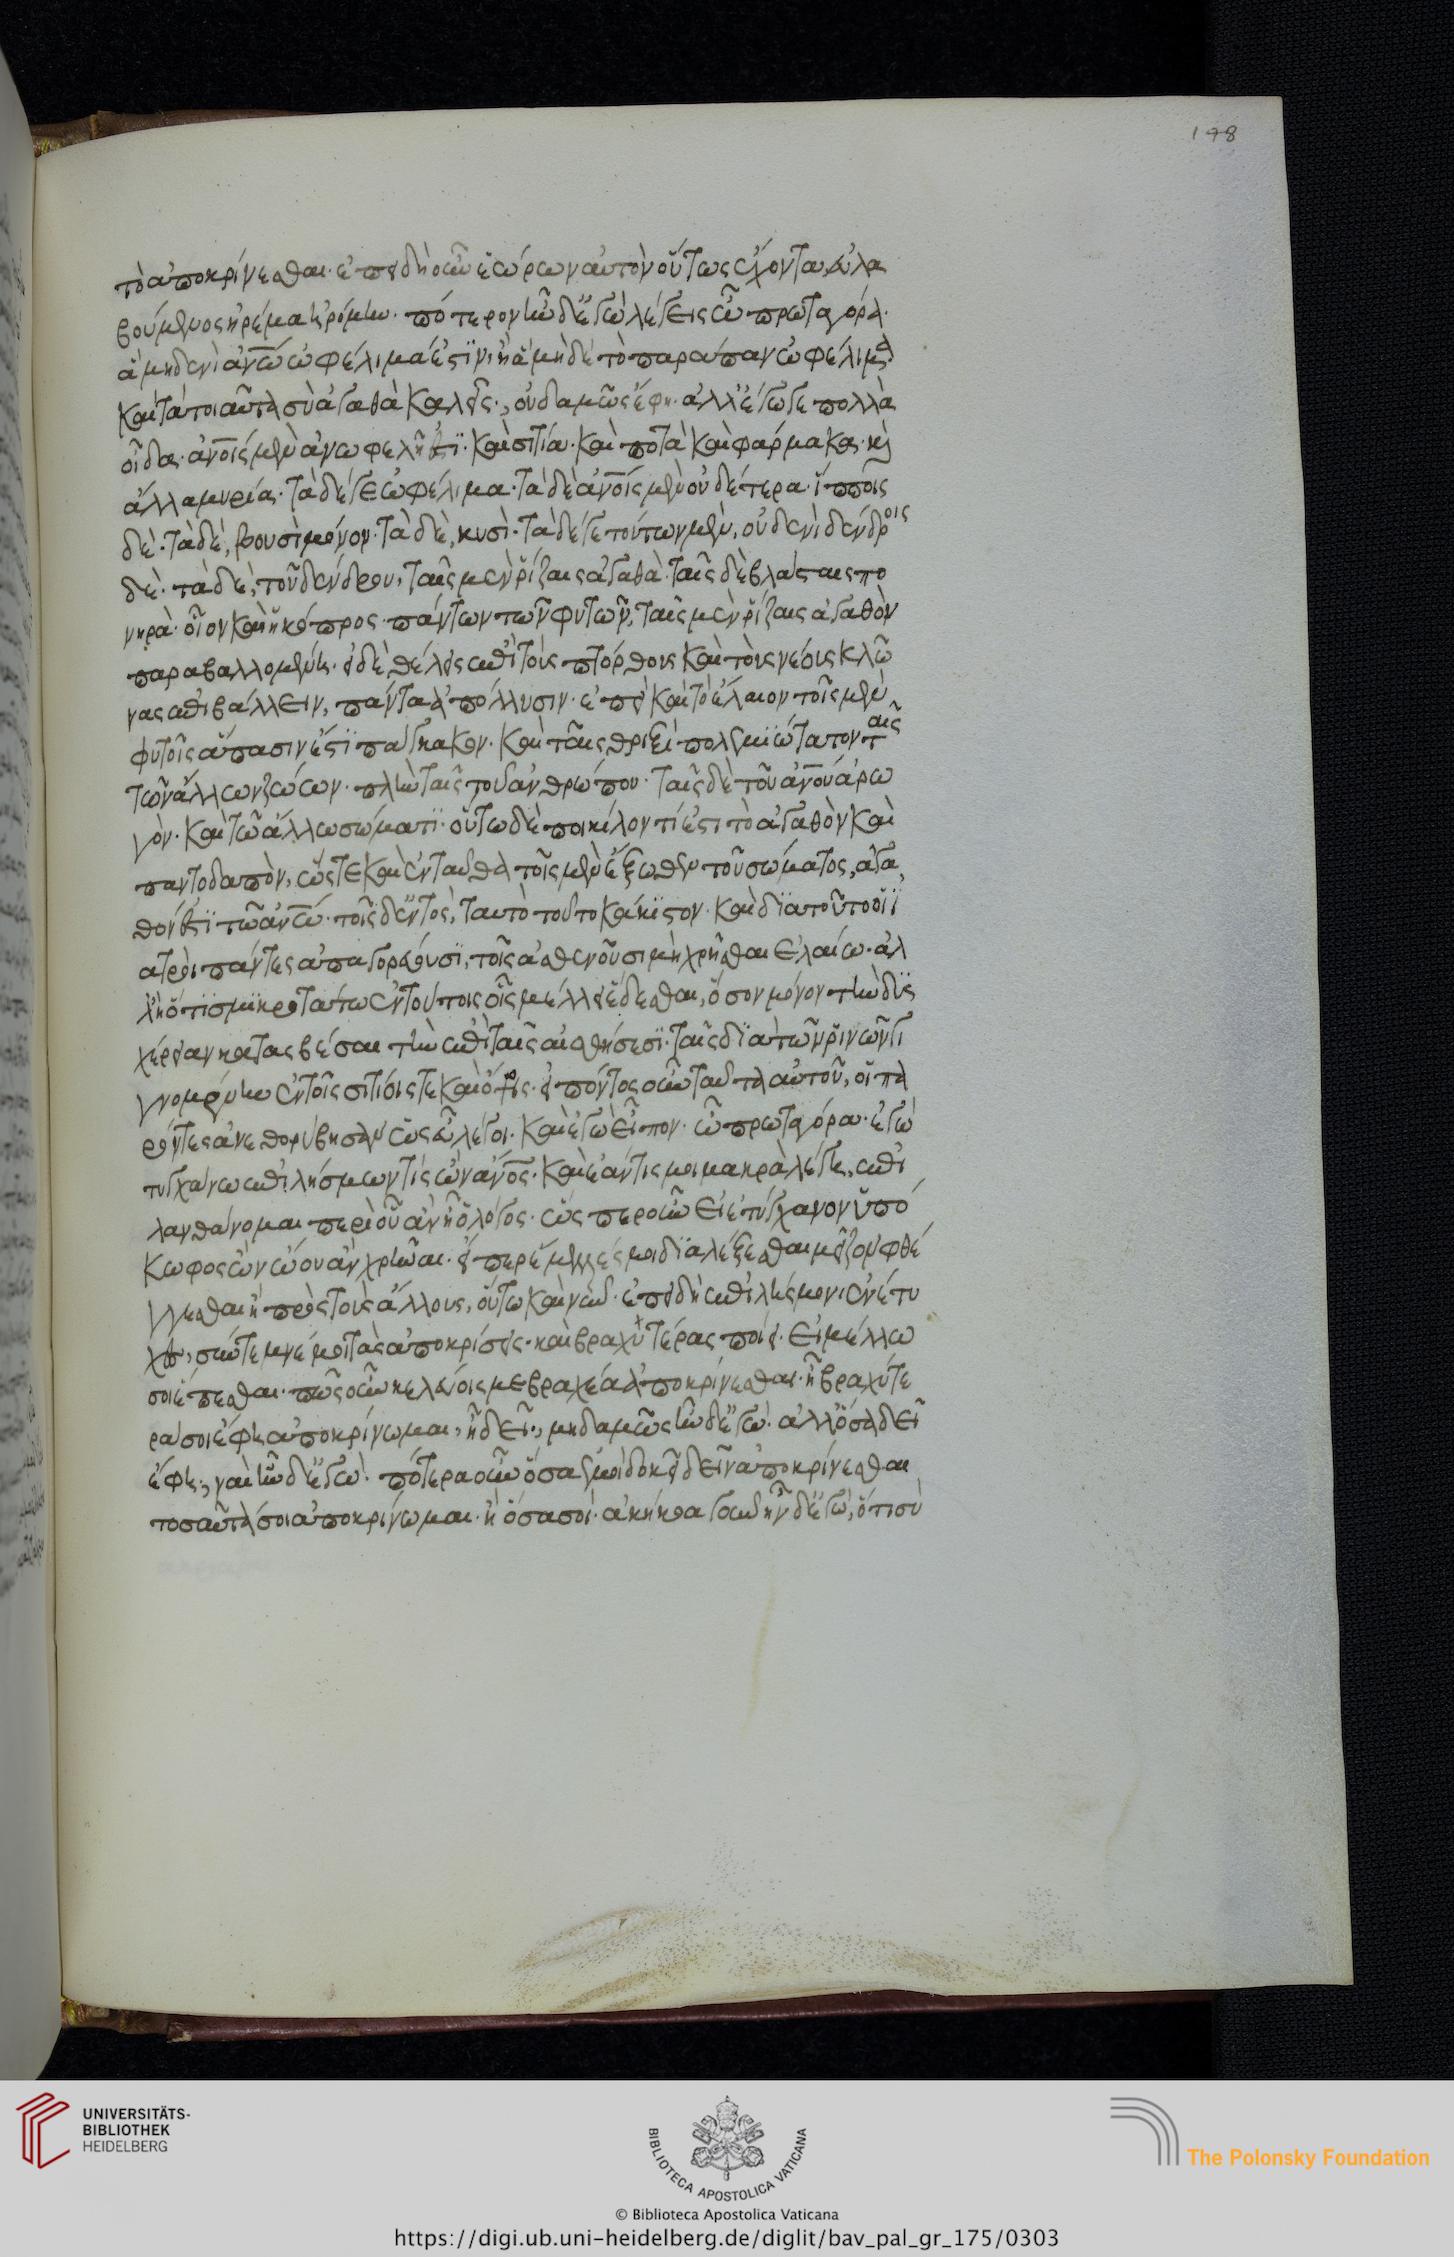 τὸ ἀποκρίνεσθαι· ἐπειδὴ οὖν ἑώρων αὐτὸν οὕτως ἔχοντα, εὐλα
βούμενος ἠρέμα ἠρόμην· πότερον ἦν δ' ἐγὼ λέγεις ὦ πρωταγόρα·
ἃ μηδενὶ ἀνω̅ν ὠφέλιμα ἐστϊν· ἢ ἃ μηδὲ τὸ παράπαν ὠφέλιμα
καὶ τὰ τοιαῦτα σὺ ἀγαθὰ καλεῖς·, οὐδαμῶς ἔφη· ἀλλ' ἔγωγε πολλὰ
οἶδα· ἀνο̅ις μὲν ἀνωφελῆ ἐστϊ· καὶ σιτία· καὶ ποτὰ καὶ φάρμακα· κὶ
ἄλλα μυρία· τὰ δέ γε ὠφέλιμα· τὰ δὲ ἀνο̅ις μὲν οὐδέτερα· ἵπποις
δὲ· τὰ δὲ, βουσὶ μόνον· τὰ δὲ, κυσὶ· τὰ δέ γε τούτων μὲν, οὐδενὶ δένδροις
δὲ· τὰ δὲ, τοῦ δένδρου, ταῖς μὲν ῥίζαις ἀγαθὰ· ταῖς δὲ βλάσταις πο
νηρὰ· οἷον καὶ ἡ κόπρος· πάντων τῶν φυτῶν, ταῖς μὲν ῥίζαις ἀγαθὸν
παραβαλλομένη· εἰ δὲ θέλεις ἐπὶ τοὺς πτόρθους καὶ τοὺς νέους κλῶ
νας ἐπιβάλλειν, πάντα ἀπόλλυσιν· ἐπεὶ καὶ τὸ ἔλαιον τοῖς μὲν
φυτοῖς ἅπασιν ἐστϊ πάγκακον· καὶ ταῖς θριξὶ πολεμϊώτατον ταῖς
τῶν ἄλλων ζώων· πλὴν ταῖς τοῦ ἀνθρώπου· ταῖς δὲ τοῦ ἀνο̅υ ἀρω
γὸν· καὶ τῶ ἄλλω σώματϊ· οὕτω δὲ ποικίλον τί ἐστι τὸ ἀγαθὸν καὶ
παντοδαπὸν, ὥστε καὶ ἐνταῦθα τοῖς μὲν ἔξωθεν τοῦ σώματος, ἀγα
θόν ἐστϊ τῶ ἀνω̅· τοῖς δ' ἐντὸς, ταυτὸ τοῦτο κάκϊστον· καὶ δϊα τοῦτο οἱ ϊ
ατροὶ πάντες ἀπαγορεύουσϊ, τοῖς ἀσθενοῦσι μὴ χρῆσθαι ἐλαίω· ἀλ
λ' ἢ ὅτϊ σμϊκροτάτω ἐν τούτοις οἷς μέλλει ἔδεσθαι, ὅσον μόνον τὴν δϋς
χέρειαν κατασβέσαι τὴν ἐπὶ ταῖς αἰσθήσεσϊ· ταῖς δϊὰ τῶν ῥινῶν γι
γνομένην ἐν τοῖς σιτίοις τε καὶ ὄψοις· εἰπόντος οὖν ταῦτα αὐτοῦ, οἱ πα
ρόντες ἀνεθορύβησαν ὡς εὖ λέγοι· καὶ ἐγὼ εἶπον· ὦ πρωταγόρα· ἐγὼ
τυγχάνω ἐπιλήσμων τίς ὢν ἄνο̅ς· καὶ ἐάν τις μοι μακρὰ λέγη, ἐπι
λανθάνομαι περὶ οὗ ἂν ἦ ὁ λόγος· ὥς περ οὖν εἰ ἐτύγχανον ὑπό
κωφος ὢν ὤου ἂν χρῆναι· εἴπερ ἔμελλές μοι δϊαλέξεσθαι μεῖζον φθέ
γγεσθαι ἢ πρὸς τοὺς ἄλλους, οὕτω καὶ νῦν· ἐπειδὴ ἐπιλήσμονι ἐνέτυ
χες, σύντεμνέ μοι τὰς ἀποκρίσεις· καὶ βραχυτέρας ποίει· εἰ μέλλω
σοι ἕπεσθαι· πῶς οὖν κελεύεις με βραχέα ἀποκρίνεσθαι· ἢ βραχύτε
ρα σοι ἔφη ἀποκρίνωμαι, ἢ δεῖ·, μηδαμῶς ἦν δ' ἐγὼ· ἀλλ' ὅσα δεῖ
ἔφη·, ναὶ ἦν δ' ἐγὼ· πότερα οὖν ὅσα ἐμοὶ δοκεῖ δεῖν ἀποκρίνεσθαι
τοσαῦτα σοι ἀποκρίνωμαι· ἢ ὅσα σοί· ἀκήκοα γοῦν ἦν δ' ἐγὼ, ὅτι σὺ
198
UNIVERSITÄTS-
BIBLIOTHEK
HEIDELBERG
BIBLIOTECA APOSTOLICA VATICANA
The Polonsky Foundation
© Biblioteca Apostolica Vaticana
https://digi.ub.uni-heidelberg.de/diglit/bav_pal_gr_175/0303